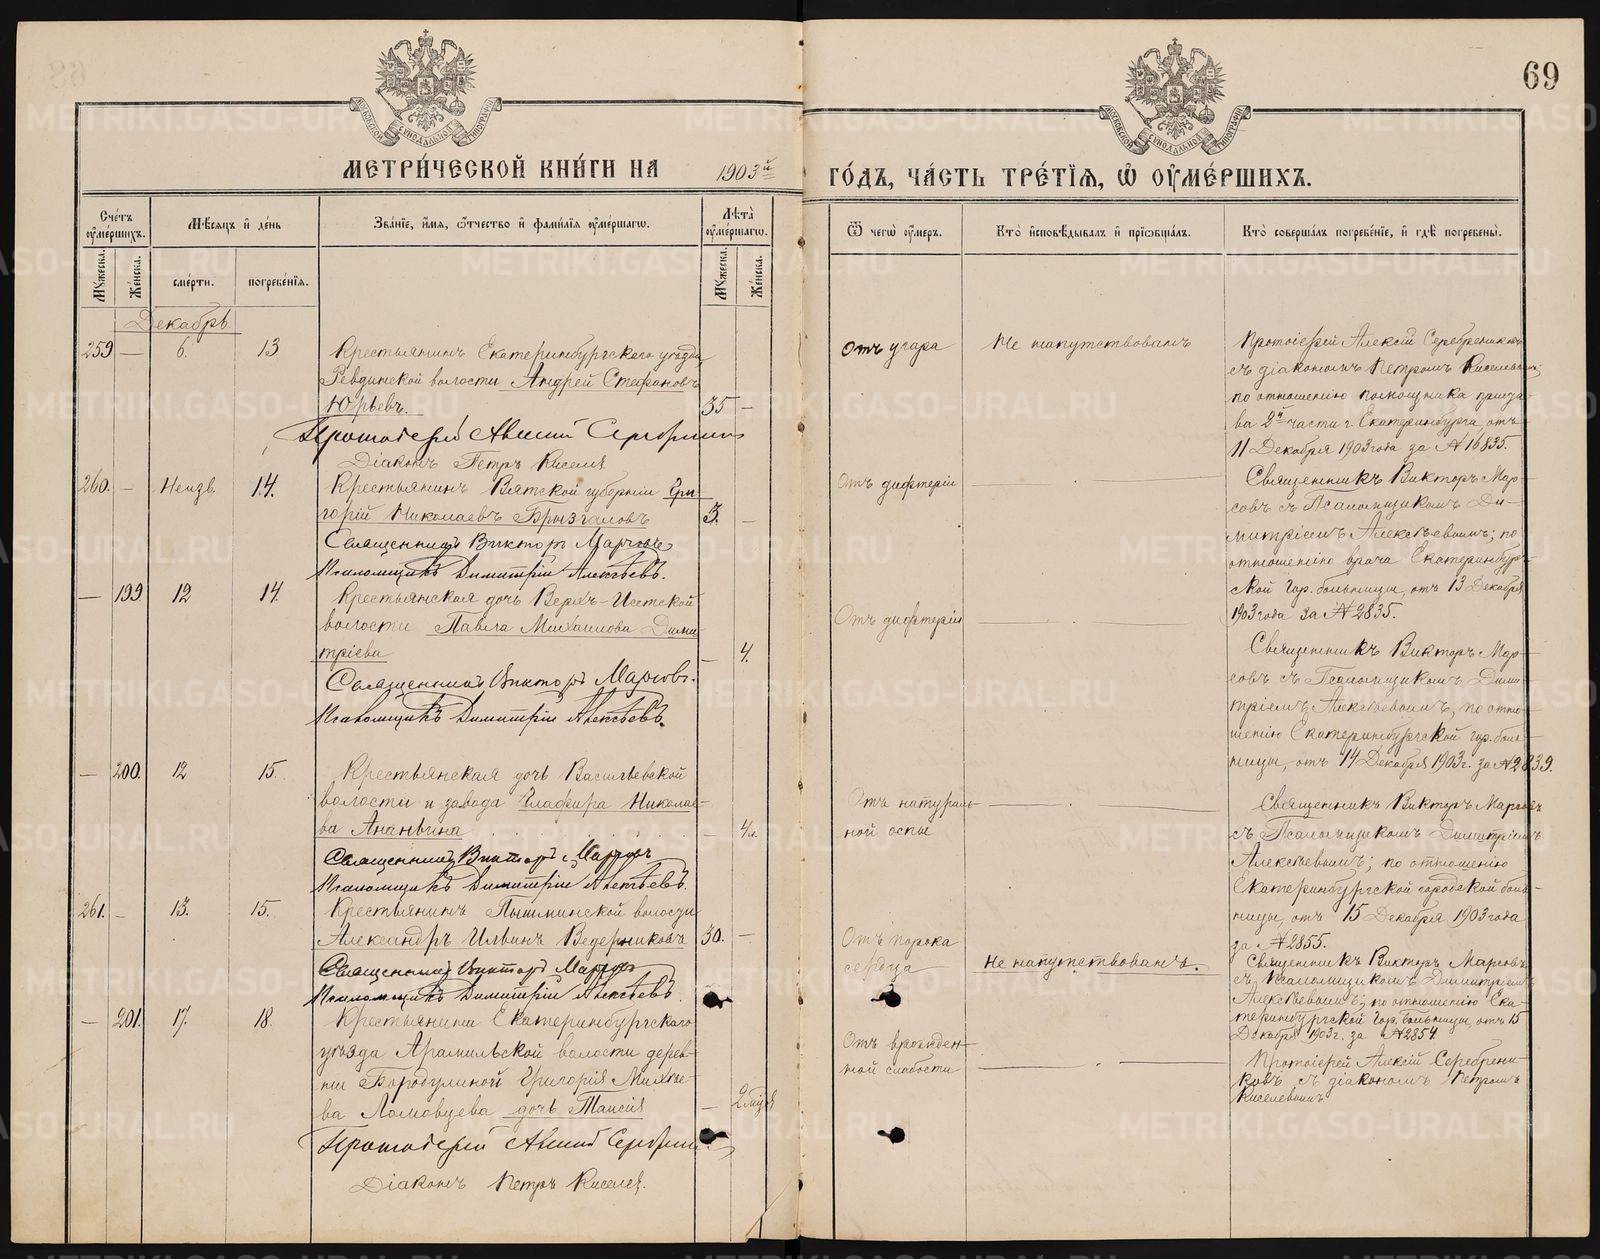 69
МЕТРИЧЕСКОЙ КНИГИ НА 1903й ГОДЪ, ЧАСТЬ ТРЕТІЯ, Ѡ ОУМЕРШИХЪ.
Счетъ оумершихъ.
Мѣсяцъ и день
Званіе, имя, ѿчество и фамилія оумершагѡ.
Лѣта оумершагѡ.
Ѿ чегѡ оумеръ.
Кто исповѣдывалъ и пріѡбщалъ.
Кто совершалъ погребеніе, и гдѣ погребены.
Мужеска.
Женска.
смерти.
погребенія.
Мужеска.
Женска.
Декабрь.
259 — 6. 13
Крестьянинъ Екатеринбургскаго уѣзда,
Ревдинской волости Андрей Стефановъ
Юрьевъ. 35 —
Протоіерей Алексій Серебренниковъ
Діаконъ Петръ Киселев
Отъ угара
Не напутствованъ
Протоіерей Алексій Серебрениковъ
съ діакономъ Петромъ Киселевымъ;
по отношенію помощника приста-
ва 2й части г. Екатеринбурга отъ
11 Декабря 1903 года за № 16835.
260. — Неизв. 14.
Крестьянинъ Вятской губерніи Гри-
горій Николаевъ Брызгаловъ 3. —
Священникъ Викторъ Марсовъ
Псаломщикъ Димитрій Алексѣевъ.
Отъ дифтеріи
Священникъ Викторъ Мар-
совъ съ Псаломщикомъ Ди-
митріемъ Алексѣевымъ; по
отношенію врача Екатеринбург-
ской Гор. больницы, отъ 13 Декабря
1903 года за № 2835.
— 199 12 14.
Крестьянская дочь Верхъ-Исетской
волости Павла Михаилова Дими-
тріева — 4.
Священникъ Викторъ Марсовъ.
Псаломщикъ Димитрій Алексѣевъ.
Отъ дифтеріи
Священникъ Викторъ Мар-
совъ съ Псаломщикомъ Дими-
тріемъ Алексѣевымъ, по отно-
шенію Екатеринбургской гор. боль-
ницы, отъ 14 Декабря 1903 г. за № 2839.
— 200. 12 15.
Крестьянская дочь Васильевской
волости и завода Глафира Николае-
ва Ананьина — 4
Священникъ Викторъ Марсовъ
Псаломщикъ Димитрій Алексѣевъ.
Отъ натураль-
ной оспы
Священникъ Викторъ Марсовъ
съ Псаломщикомъ Димитріемъ
Алексѣевымъ; по отношенію
Екатеринбургской городской боль-
ницы, отъ 15 Декабря 1903 года
за № 2855.
261. — 13. 15.
Крестьянинъ Пышминской волости
Александръ Ильинъ Ведерниковъ 30. —
Священникъ Викторъ Марсовъ
Псаломщикъ Димитрій Алексѣевъ.
Отъ порока
сердца
Не напутствованъ.
Священникъ Викторъ Марсовъ
съ Псаломщикомъ Димитріемъ
Алексѣевымъ; по отношенію Ека-
теринбургской Гор. Больницы, отъ 15
Декабря 1903 г. за № 2854
— 201. 17. 18.
Крестьянина Екатеринбургскаго
уѣзда Арамильской волости дерев-
ни Бородулиной Григорія Михѣе-
ва Ломовцева дочь Таисія — 2 мѣся
Протоіерей Алексій Серебренниковъ
Діаконъ Петръ Киселев.
Отъ врожден-
ной слабости
Протоіерей Алексій Серебрени-
ковъ съ діакономъ Петромъ
Киселевымъ
METRIKI.GASO-URAL.RU